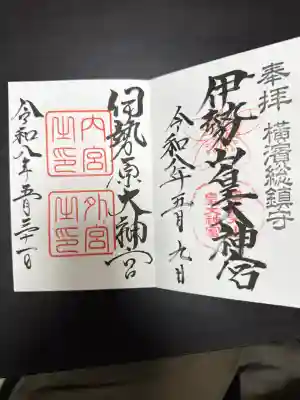 奉拝 横濱総鎮守
伊勢山皇大神宮
令和八年五月九日
伊勢原大神宮
内宮之印
外宮之印
令和八年五月三十一日